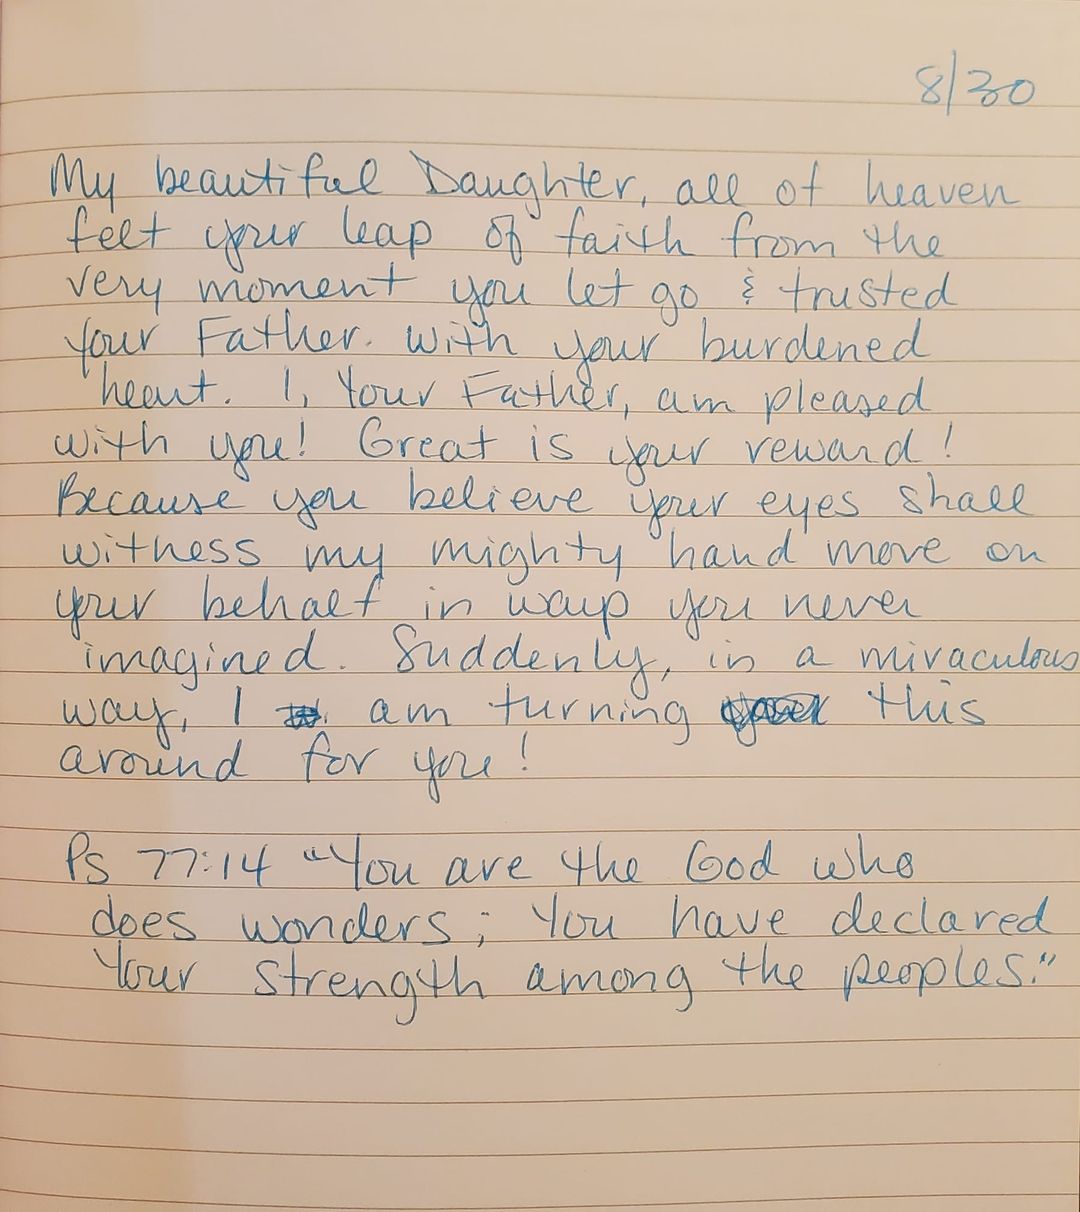 8/30
My beautiful Daughter, all of heaven
felt your leap of faith from the
very moment you let go & trusted
your Father. with your burdened
heart. I, Your Father, am pleased
with you! Great is your reward!
Because you believe your eyes shall
witness my mighty hand move on
your behalf in ways you never
imagined. Suddenly, in a miraculous
way, I am turning this
around for you!
Ps 77:14 "You are the God who
does wonders; You have declared
Your strength among the peoples."